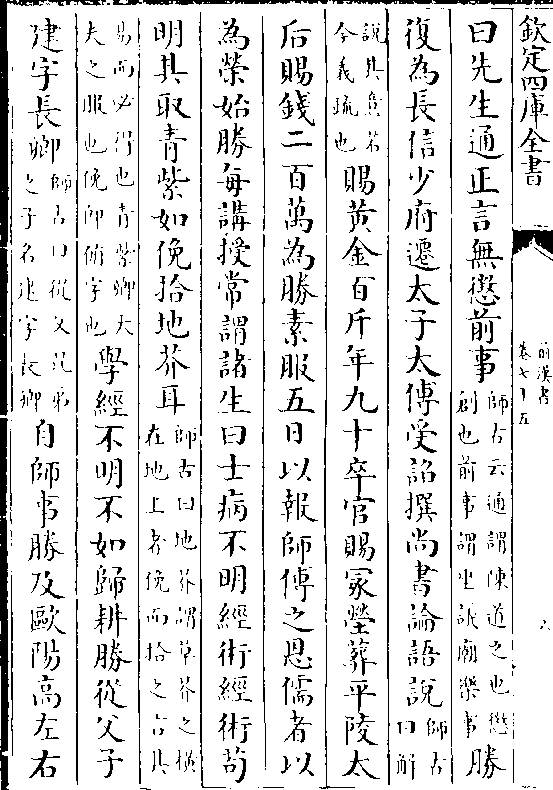 欽定四庫全書
前漢書
卷七十五
六
曰先生通正言無懲前事師古云通謂陳道之也懲創也前事謂坐詆廟樂事勝
復為長信少府遷太子太傅受詔撰尚書論語說師古曰解
說其意若今義疏也賜黄金百斤年九十卒官賜冢塋葬平陵太
后賜錢二百萬為勝素服五日以報師傅之恩儒者以
為榮始勝每講授常謂諸生曰士病不明經術經術茍
明其取青紫如俛拾地芥耳師古曰地芥謂草芥之橫在地上者俛而拾之言其
易而必得也青紫卿大夫之服也俛即俯字也學經不明不如歸耕勝從父子
建字長卿師古曰從父昆弟之子名建字長卿自師事勝及歐陽高左右